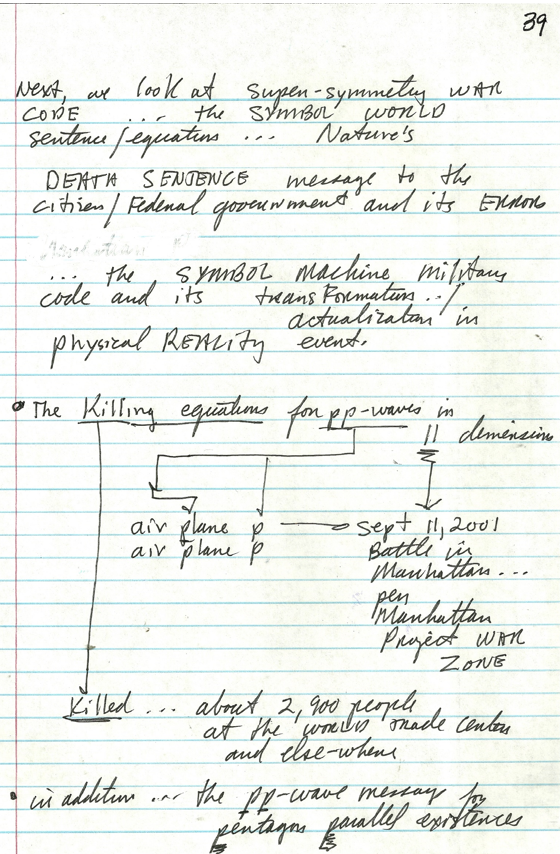 39
Next, we look at super-symmetry WAR
CODE ... the SYMBOL WORLD
sentence/equation ... Nature's
DEATH SENTENCE message to the
citizen/Federal government and its ERROR
... the SYMBOL Machine military
code and its transFormation ../
actualization in
physical REALITY event.
• The Killing equations for pp-waves in
11 dimensions
air plane p sept 11, 2001
air plane p Battle in
Manhattan...
per
Manhattan
Project WAR
ZONE
Killed ... about 2,900 people
at the world trade center
and else-where
• in addition ... the pp-wave message for
pentagon parallel existences